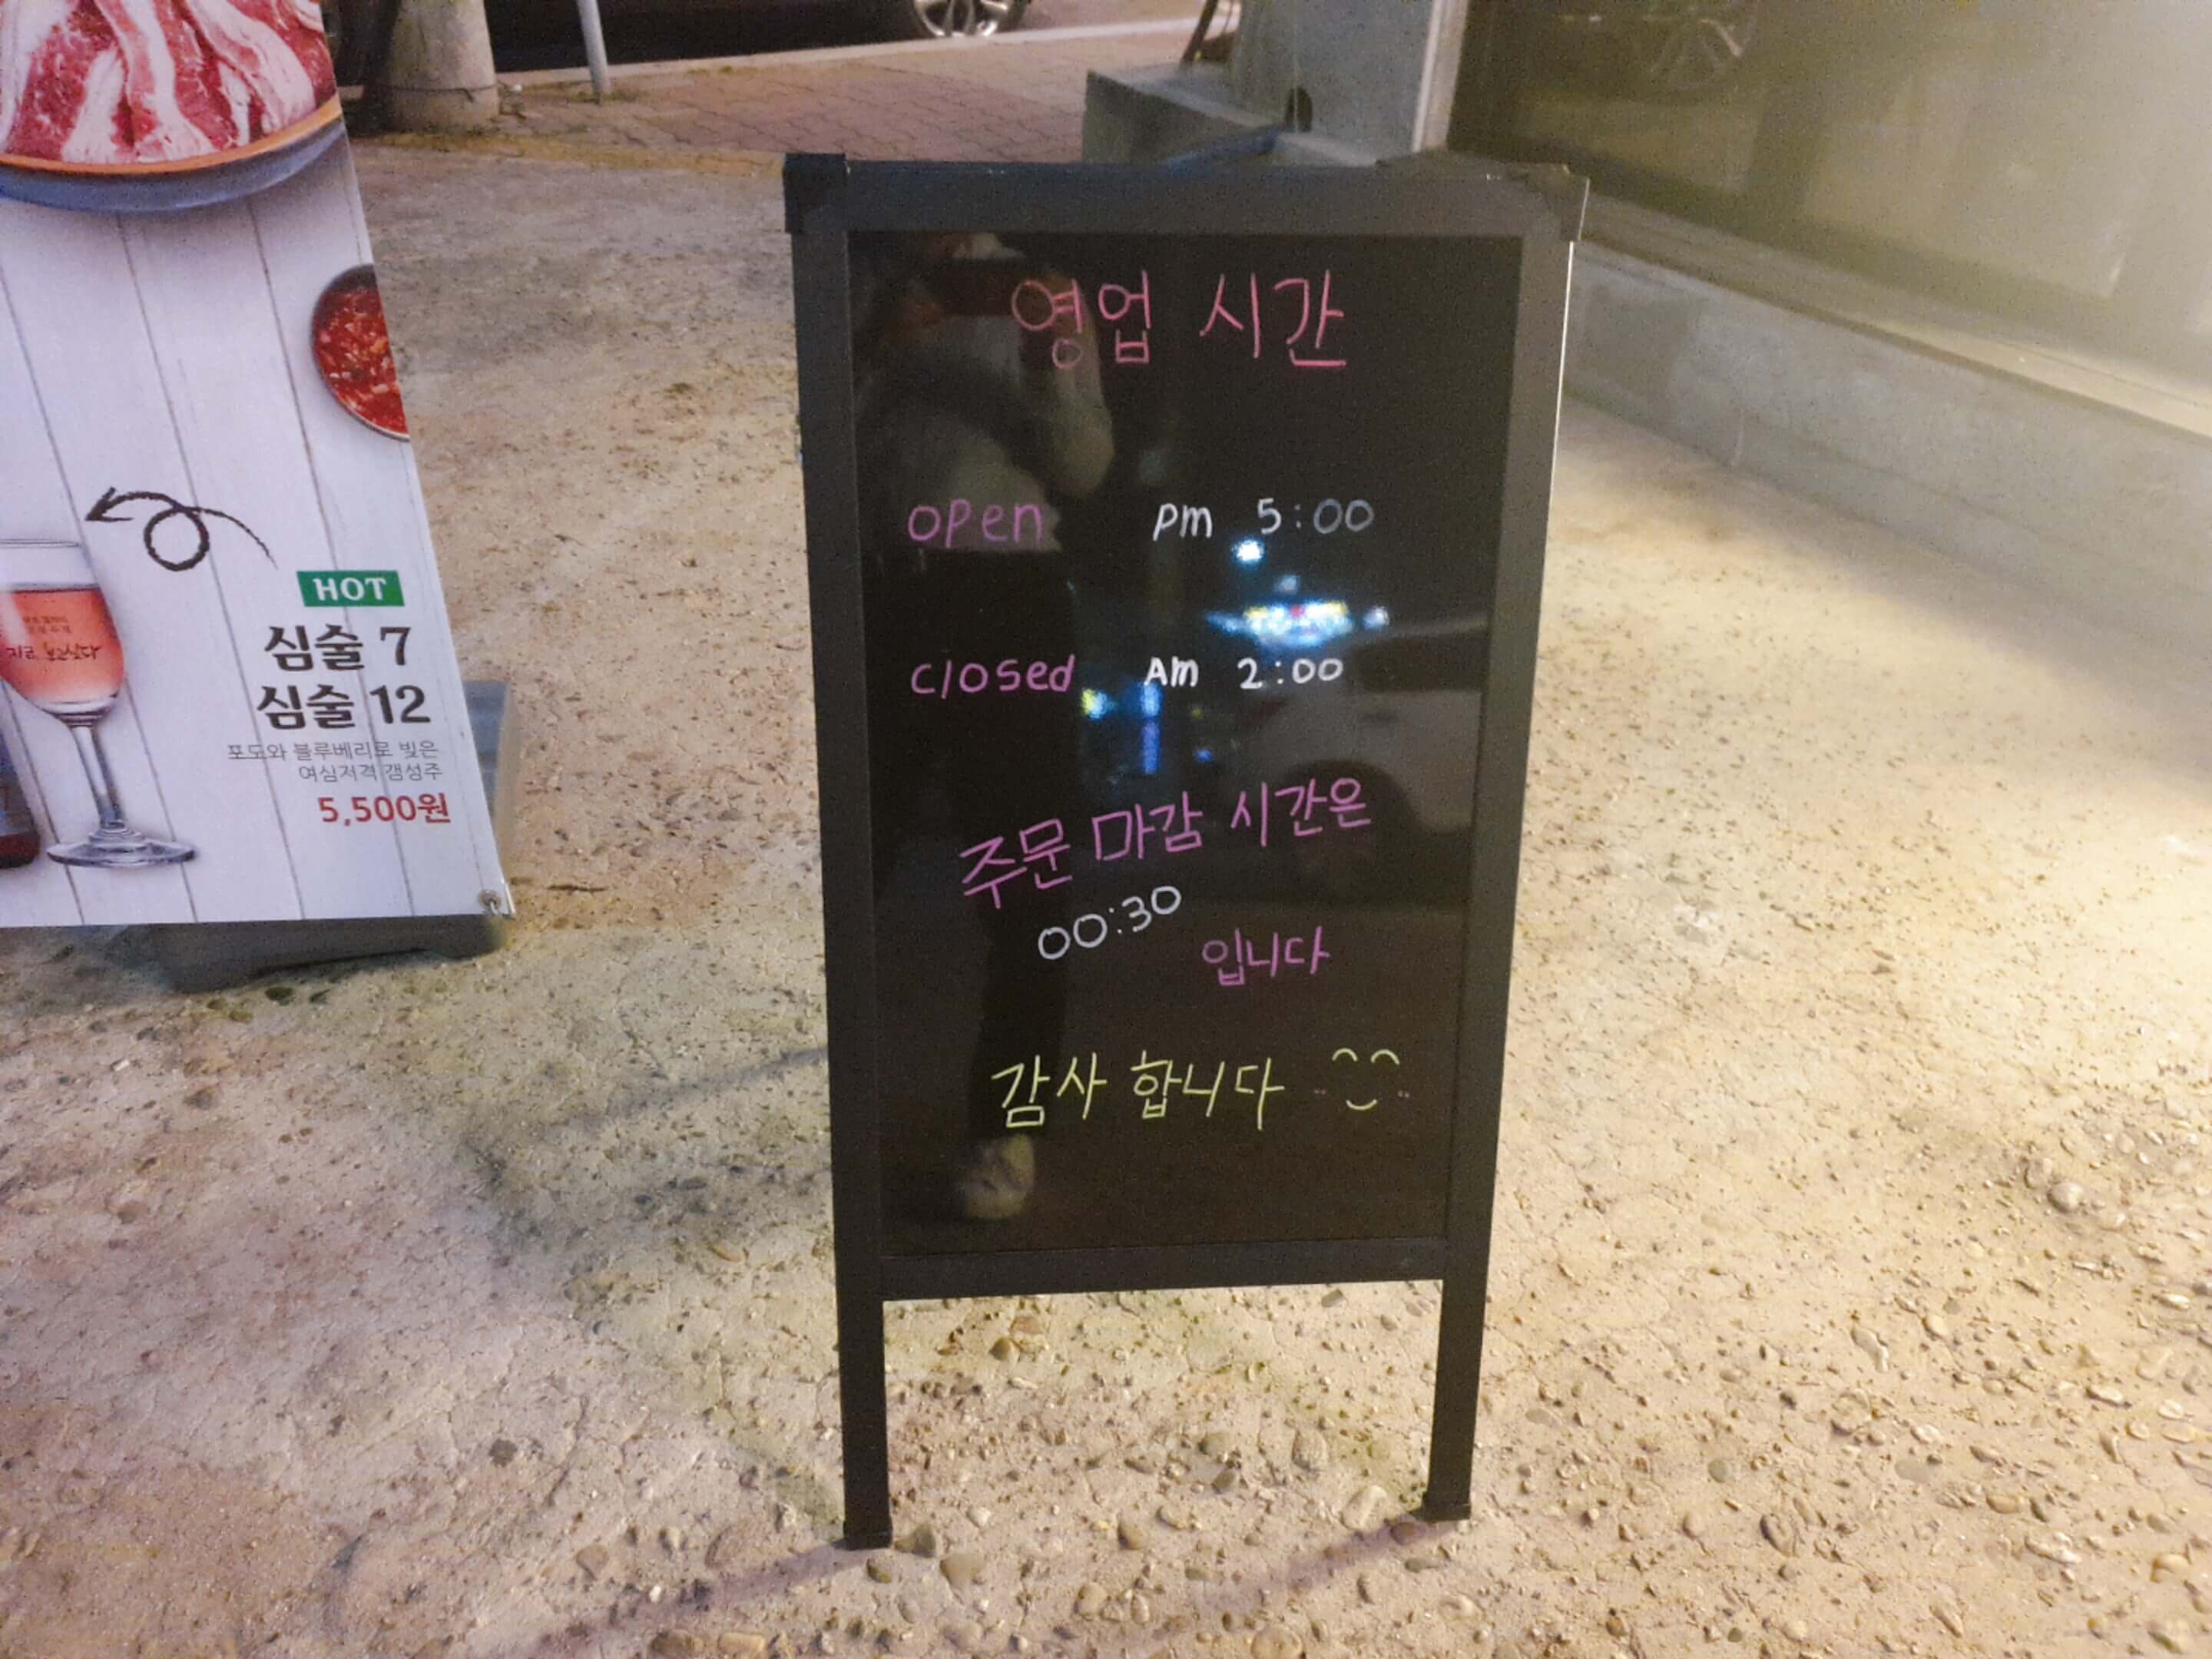 영업 시간
open pm 5:00
closed Am 2:00
주문 마감 시간은
00:30
입니다
감사 합니다
HOT
심술 7
심술 12
포도와 블루베리로 빚은
여심저격 갬성주
5,500원